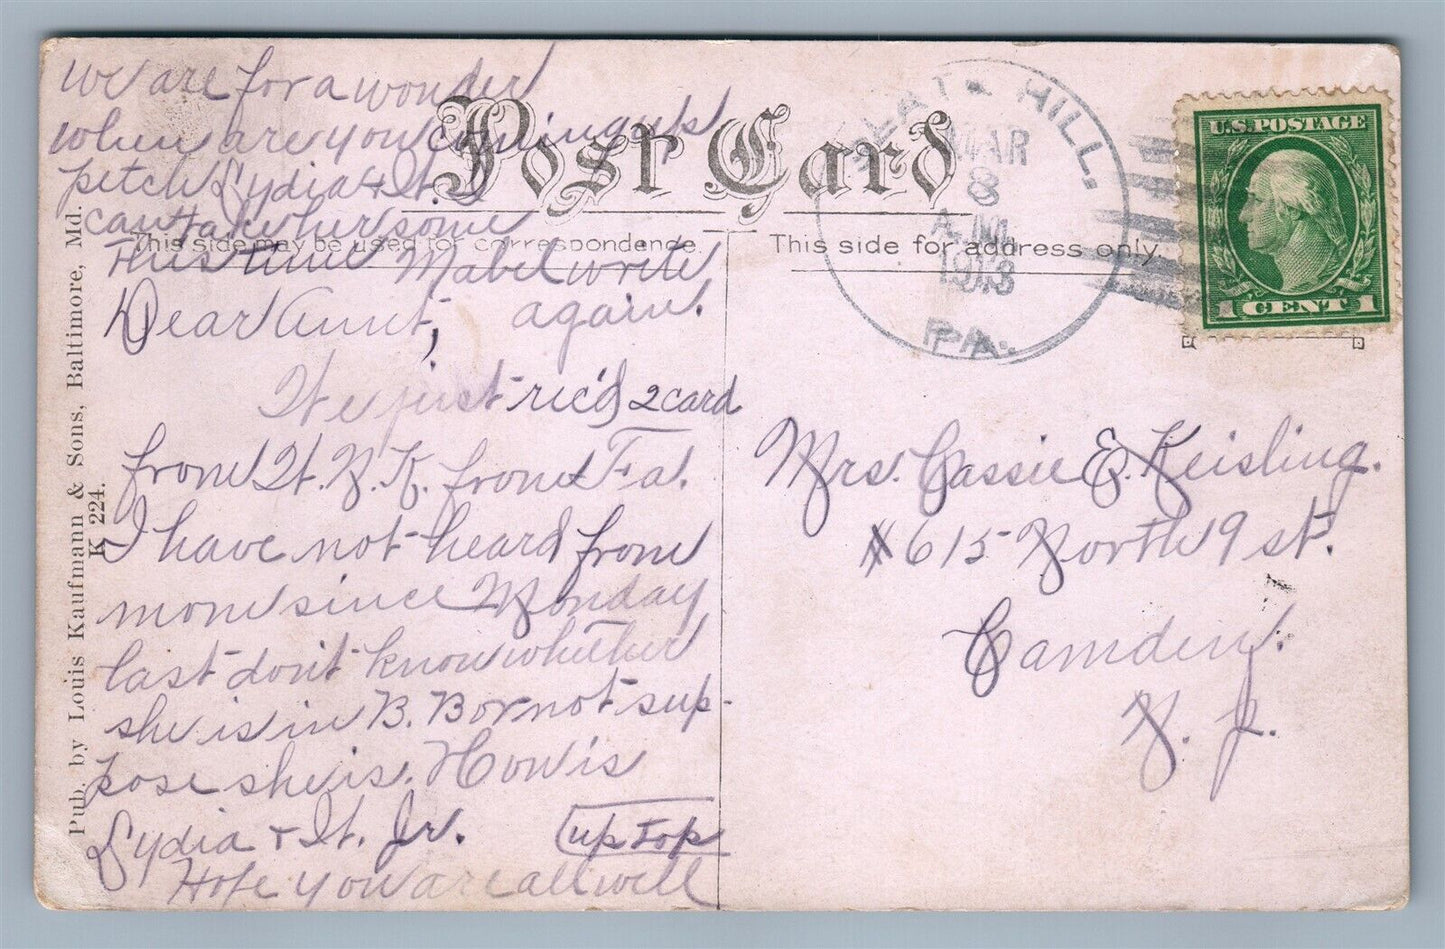 we are for a wonder
when are you coming up
pitch Lydia & It.
can take her some
This time Mabel write
again.
Post Card
This side may be used for correspondence.
This side for address only.
SLATE HILL.
MAR
8
A.M.
1913
PA.
U.S. POSTAGE
1 CENT 1
Dear Aunt,
We just rec'd 2 card
from It. N. K. from Fa.
I have not heard from
mom since Monday
last don't know whether
she is in B. B or not sup-
pose she is. How is
Lydia & It. Jr. up top
Hope you are all well
Mrs. Cassie E. Keisling.
#615 North 9 st.
Camden.
N. J.
Pub. by Louis Kaufmann & Sons, Baltimore, Md.
K 224.